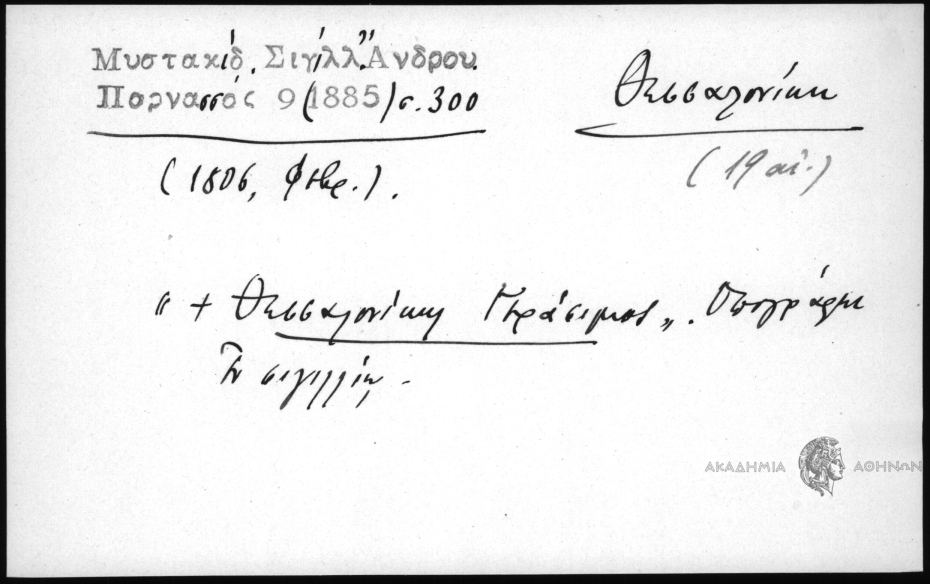 Μυστακίδ. Σιγίλλ. Ἄνδρου.
Παρνασσός 9 (1885) σ. 300
Θεσσαλονίκη
(19 αἰ.)
(1806, Φεβρ.).
" + Θεσσαλονίκης Γεράσιμος „. Ὑπογράφει
σιγίλλιον.
ΑΚΑΔΗΜΙΑ ΑΘΗΝΩΝ